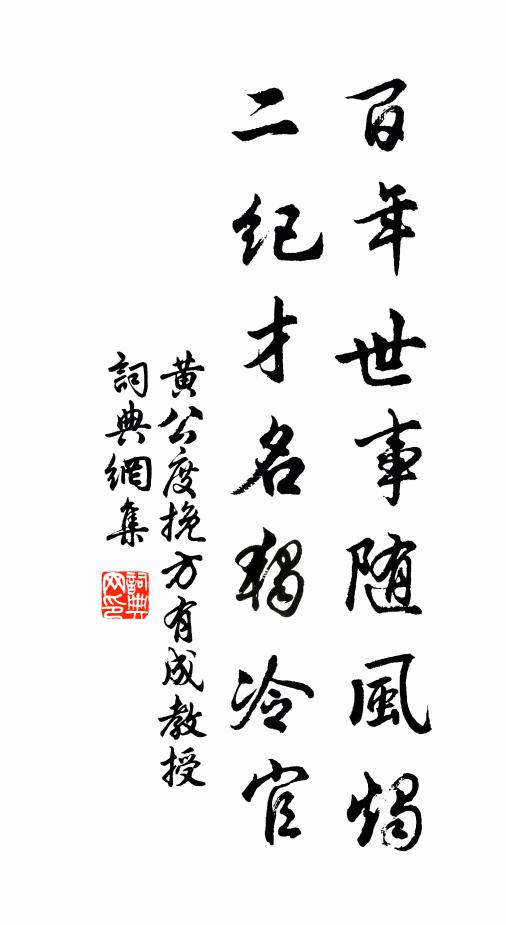 百年世事随風燭
二紀才名獨冷官
黄公度挽方有成教授
詞典網集
詞典
网印